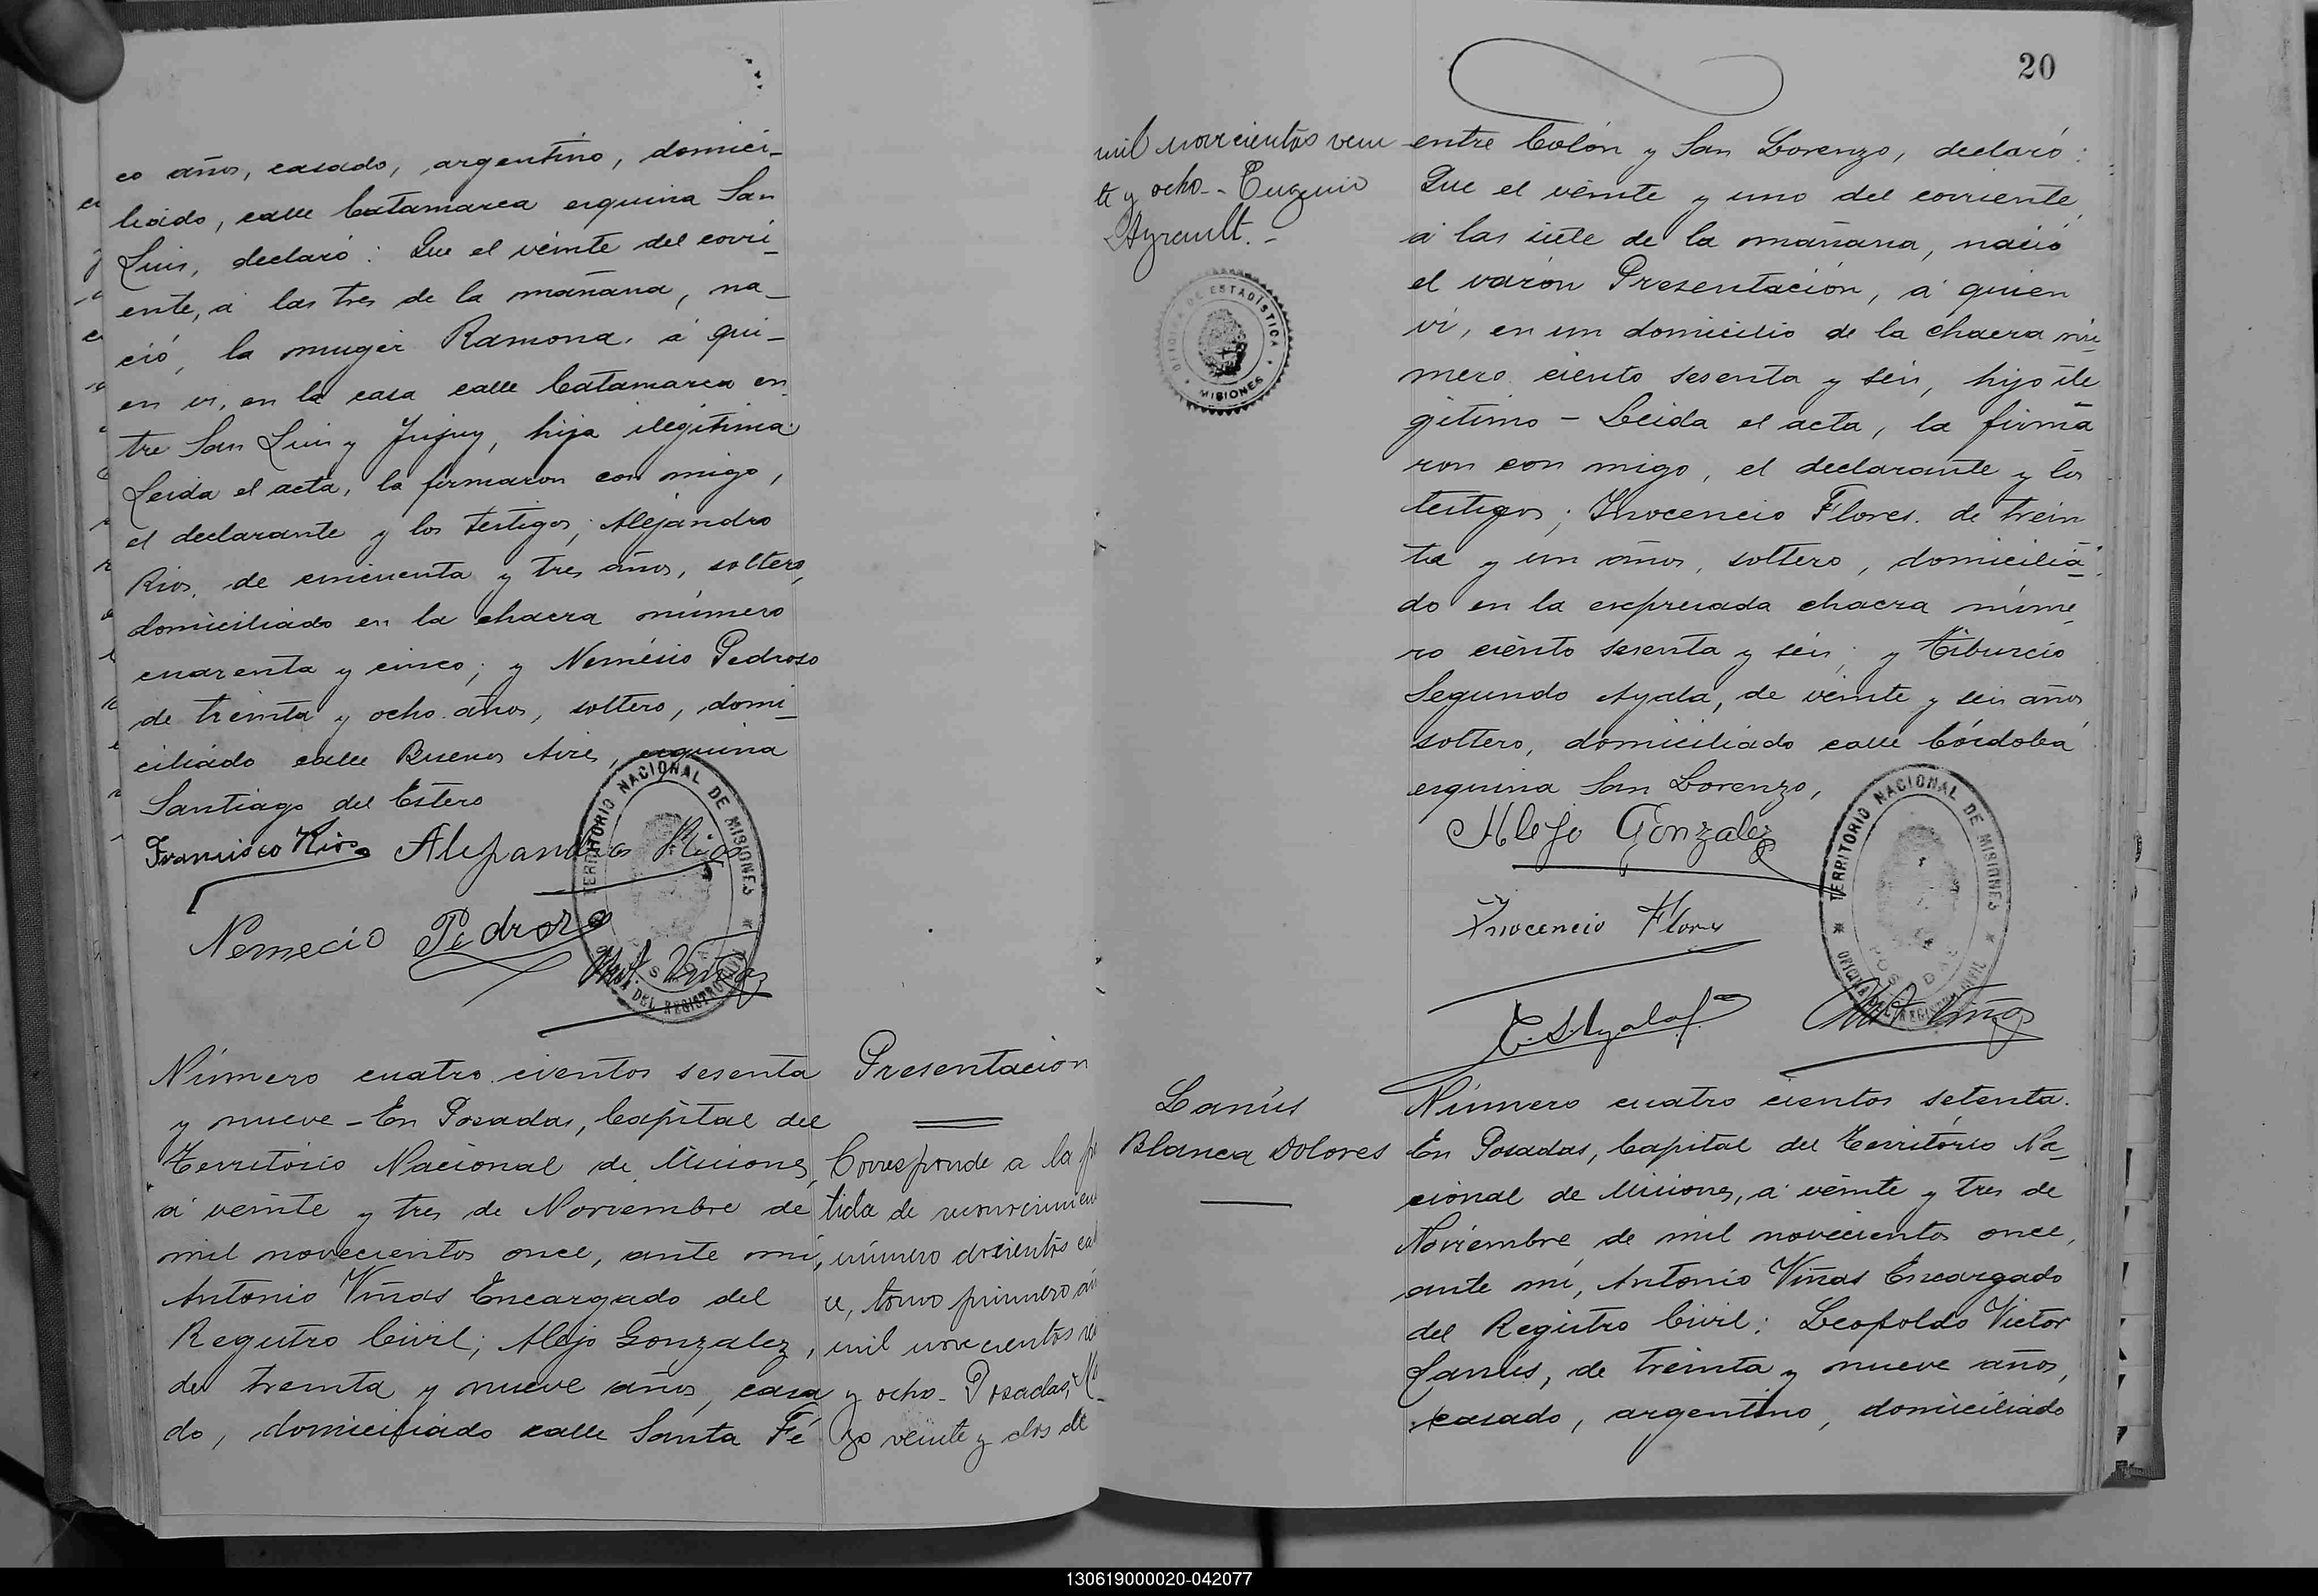 co años, casado, argentino, domici-
liado, calle Catamarca esquina San
Luis, declaró: Que el veinte del corri-
ente, á las tres de la mañana, na-
ció, la muger Ramona, á qui-
en vi, en la casa calle Catamarca en
tre San Luis y Jujuy, hija ilegitima
Leida el acta, la firmaron con migo,
el declarante y los testigos; Alejandro
Rios, de cincuenta y tres años, soltero,
domiciliado en la chacra número
cuarenta y cinco; y Nemésio Pedroso
de treinta y ocho años, soltero, domi-
ciliado calle Buenos Aires, esquina
Santiago del Estero
Francisco Rios Alejandro Rios
Nemecio Pedrozo
TERRITORIO NACIONAL DE MISIONES
Número cuatro cientos sesenta
y nueve - En Posadas, Capital del
Territorio Nacional de Misiones
á veinte y tres de Noviembre de
mil novecientos once, ante mí,
Antonio Viñas Encargado del
Registro Civil; Alejo Gonzalez,
de treinta y nueve años, casa
do, domiciliado calle Santa Fé
Presentacion
Corresponde a la
tida de reconocimien
número doscientos
ce, tomo primero
mil novecientos
y ocho - Posadas,
zo veinte y dos de
20
mil novecientos vein
te y ocho - Eugenio
Ayrault. -
OFICINA DE ESTADÍSTICA
MISIONES
entre Colón y San Lorenzo, declaró:
Que el veinte y uno del corriente,
á las siete de la mañana, nació
el varón Presentación, á quien
vi, en un domicilio de la chacra nú-
mero ciento sesenta y seis, hijo ile
gitimo - Leida el acta, la firma
ron con migo, el declarante y los
testigos; Inocencio Flores, de trein
ta y un años, soltero, domicilia-
do en la expresada chacra núme-
ro ciento sesenta y seis; y Tiburcio
Segundo Ayala, de veinte y seis años
soltero, domiciliado calle Córdoba
esquina San Lorenzo,
Alejo Gonzalez
Inocencio Flores
T. S. Ayala
TERRITORIO NACIONAL DE MISIONES
Lanús
Blanca Dolores
Número cuatro cientos setenta.
En Posadas, Capital del Territorio Na-
cional de Misiones, á veinte y tres de
Noviembre de mil novecientos once,
ante mí, Antonio Viñas Encargado
del Registro Civil: Leopoldo Victor
Lanús, de treinta y nueve años,
casado, argentino, domiciliado
130619000020-042077